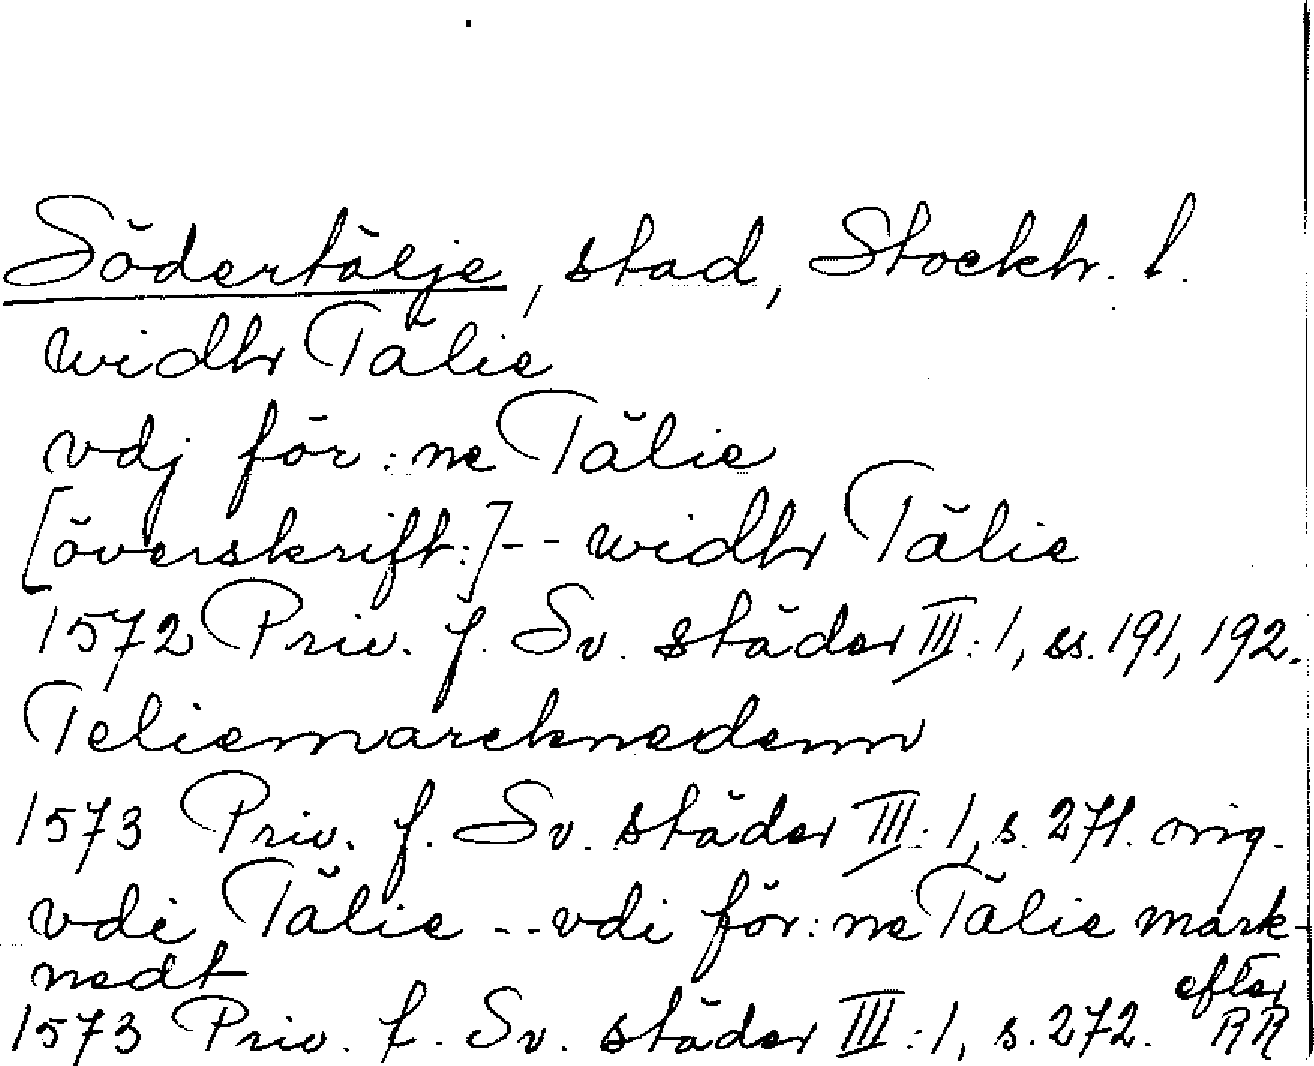 Södertälje, stad, Stockh. l.
widhr Tälie
vdj för:ne Tälie
[överskrift:] -- widhr Tälie
1572 Priv. f. Sv. städer III:1, ss. 191, 192.
Teliemarcknedenn
1573 Priv. f. Sv. städer III:1, s. 271. orig.
vdi Tälie -- vdi för:ne Tälie mark-
nedt
1573 Priv. f. Sv. städer III:1, s. 272. efter RR